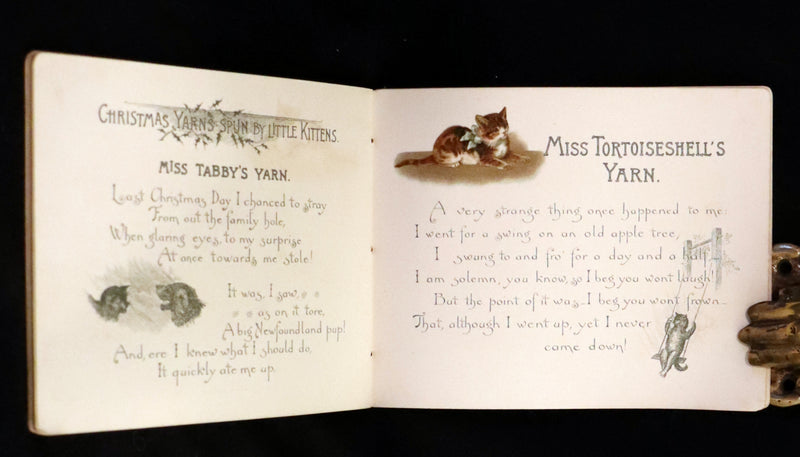 CHRISTMAS YARNS SPUN BY LITTLE KITTENS.
MISS TABBY'S YARN.
Last Christmas Day I chanced to stray
From out the family hole,
When glaring eyes, to my surprise
At once towards me stole!
It was, I saw,
as on it tore,
A big Newfoundland pup!
And, ere I knew what I should do,
It quickly ate me up.
MISS TORTOISESHELL'S
YARN.
A very strange thing once happened to me:
I went for a swing on an old apple tree,
I swung to and fro' for a day and a half_
I am solemn, you know, so I beg you wont laugh!
But the point of it was_I beg you wont frown_
That, although I went up, yet I never
came down!